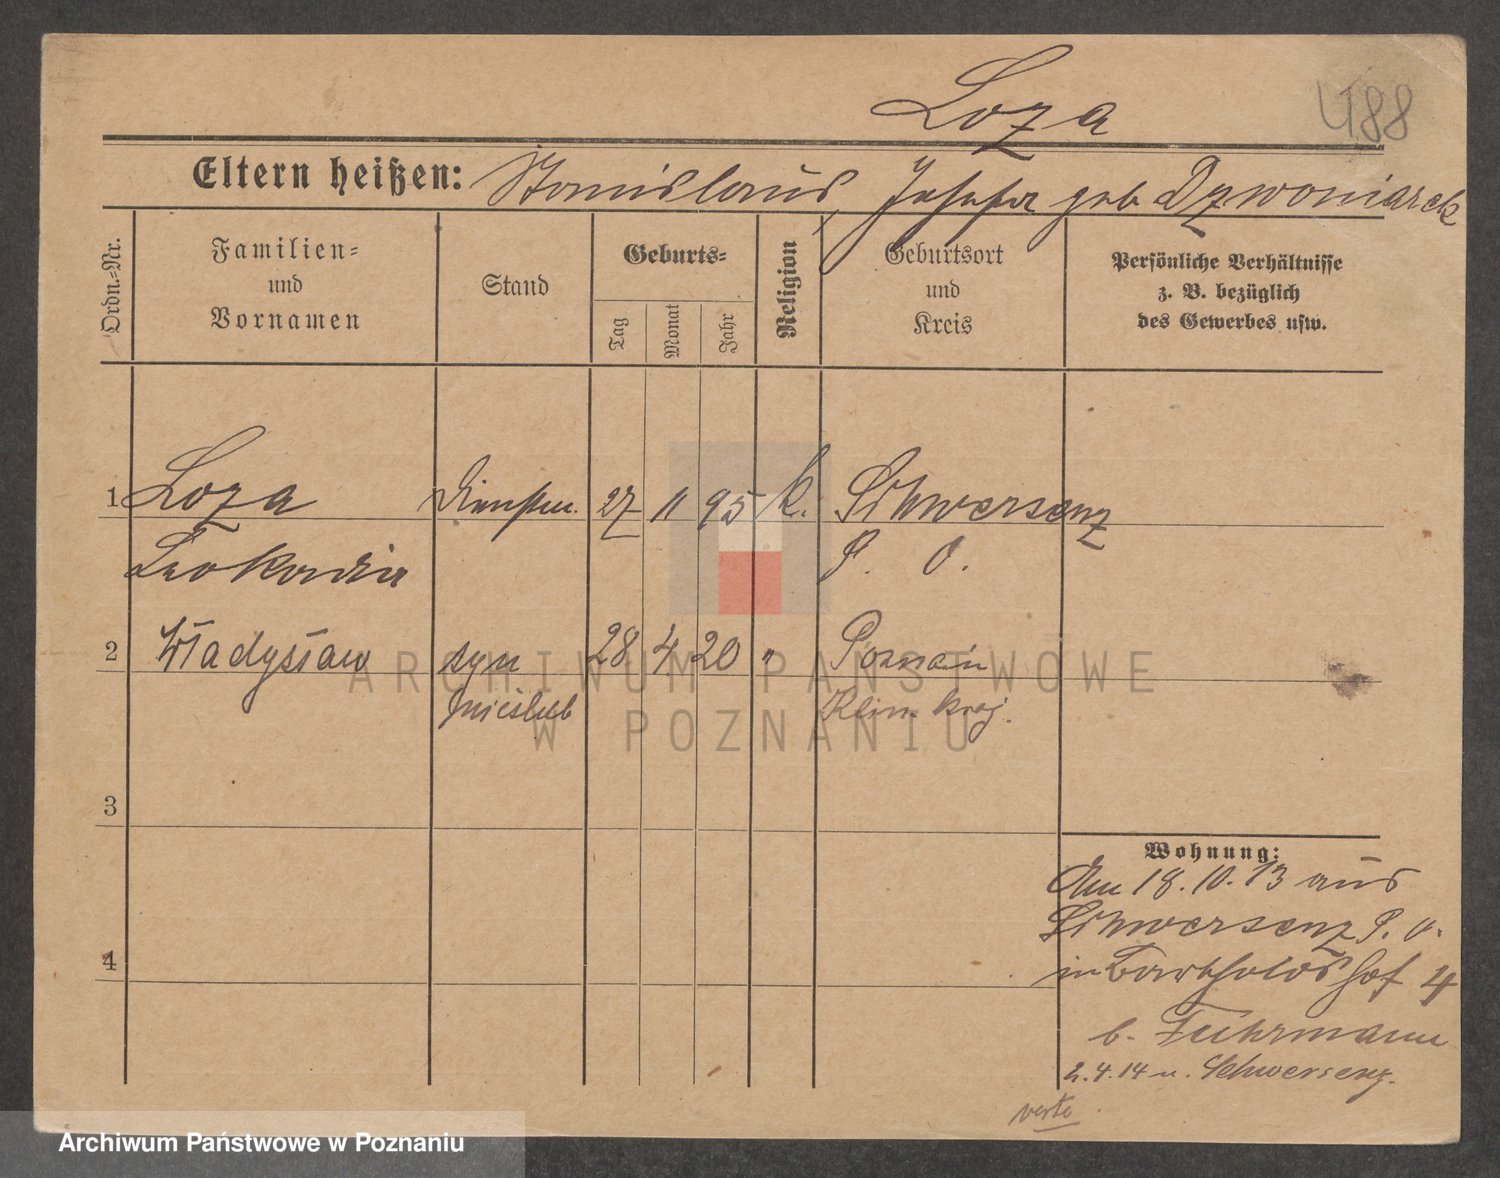 Loza
488
Eltern heißen: Stanislaus, Josefa geb Dzwoniarek
Ordn.-Nr.
Familien-
und
Vornamen
Stand
Geburts-
Tag
Monat
Jahr
Religion
Geburtsort
und
Kreis
Persönliche Verhältnisse
z. B. bezüglich
des Gewerbes usw.
1 Loza Dienstm. 27 11 95 k. Schwersenz
Leokadia P. O.
2 Władysław syn 28 4 20 " Poznań
nieślub Klin. kraj.
3
4
Wohnung:
Am 18.10.13 aus
Schwersenz P. O.
in Bartholdshof 4
b. Fuhrmann
2.4.14 n. Schwersenz.
verte
ARCHIWUM PAŃSTWOWE
W POZNANIU
Archiwum Państwowe w Poznaniu